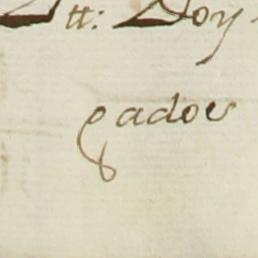 tt: Doy
gados